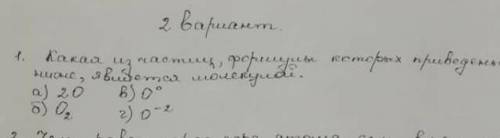 2 вариант.
1. Какая из частиц, формулы которых приведены
ниже, является молекулой.
а) 2O в) O°
б) O₂ г) O⁻²